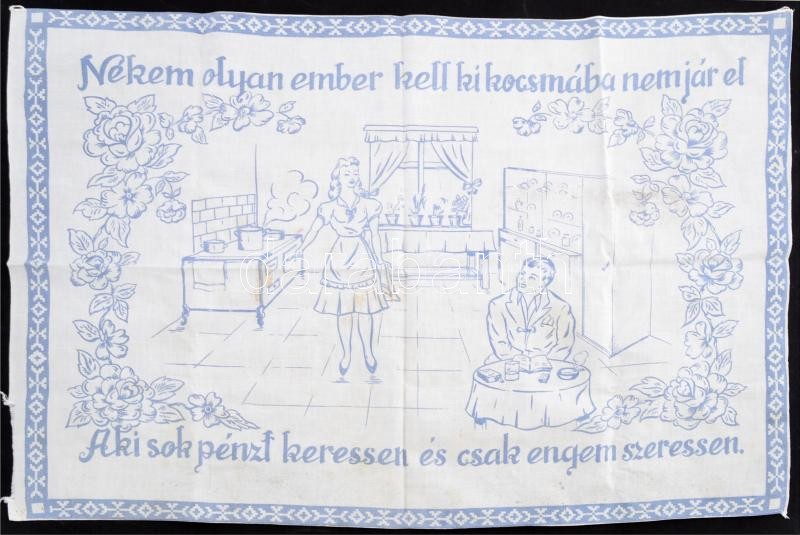 Nékem olyan ember kell ki kocsmába nem jár el
darabanth
Aki sok pénzt keressen és csak engem szeressen.